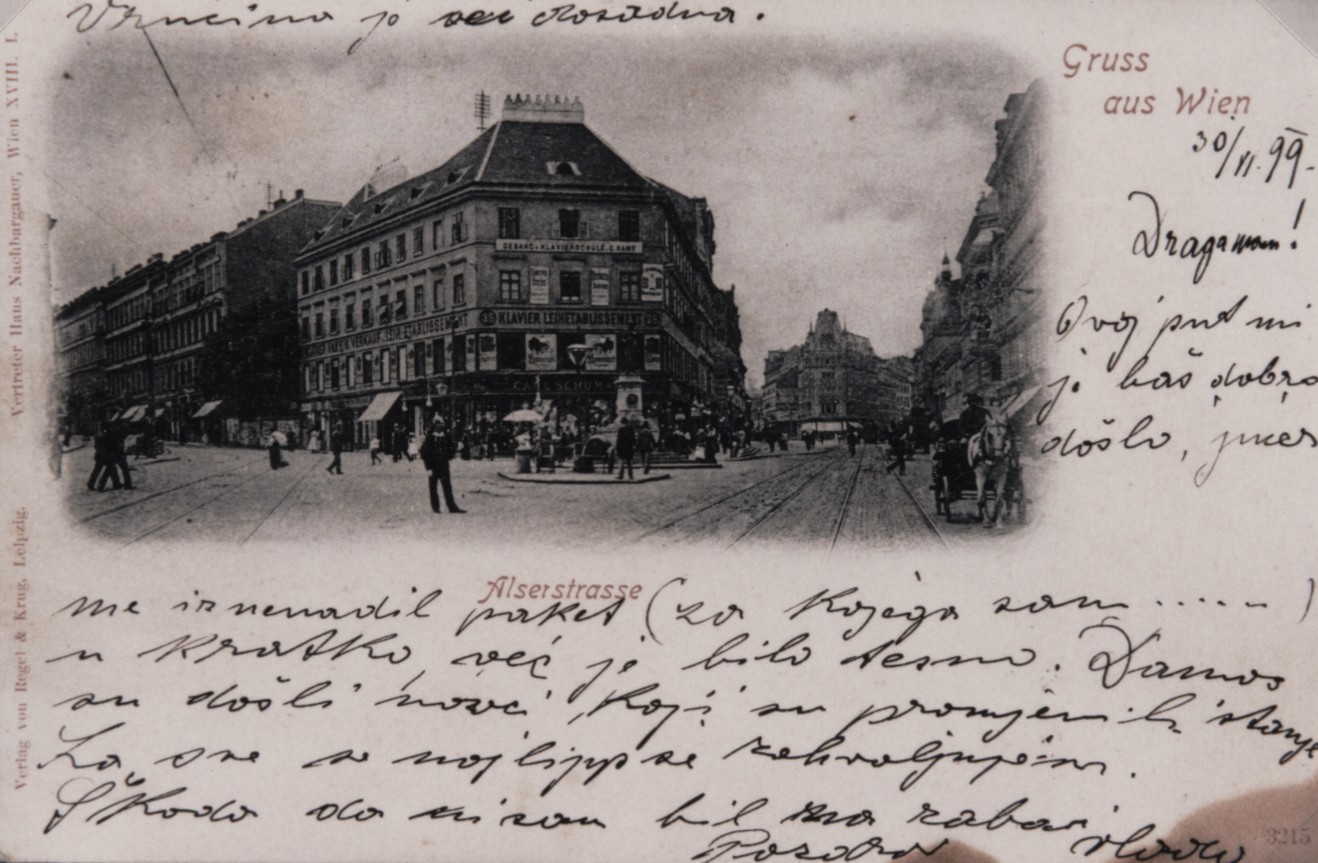 Vrućina je već dosadna.
Gruss
aus Wien
30/VI. 99.
Draga mam!
Ovoj put mi
je baš dobro
došlo, jer
GESANG- u. KLAVIERSCHULE
KLAVIER LEIHETABLISSEMENT
VERKAUF
LEIH-ETABLISSEMENT
Alserstrasse
me iznenadil paket (za kojega sam ...... )
u kratko, već je bilo tesno. Danas
su došli novci, koji su promjenili stanje
Za sve se najljippše zahvaljujem.
Škoda da nisam bil na zabavi
Pozdrav Vlado
Vertreter Hans Nachbargauer, Wien XVIII. 1.
Verlag von Regel & Krug, Leipzig.
3215